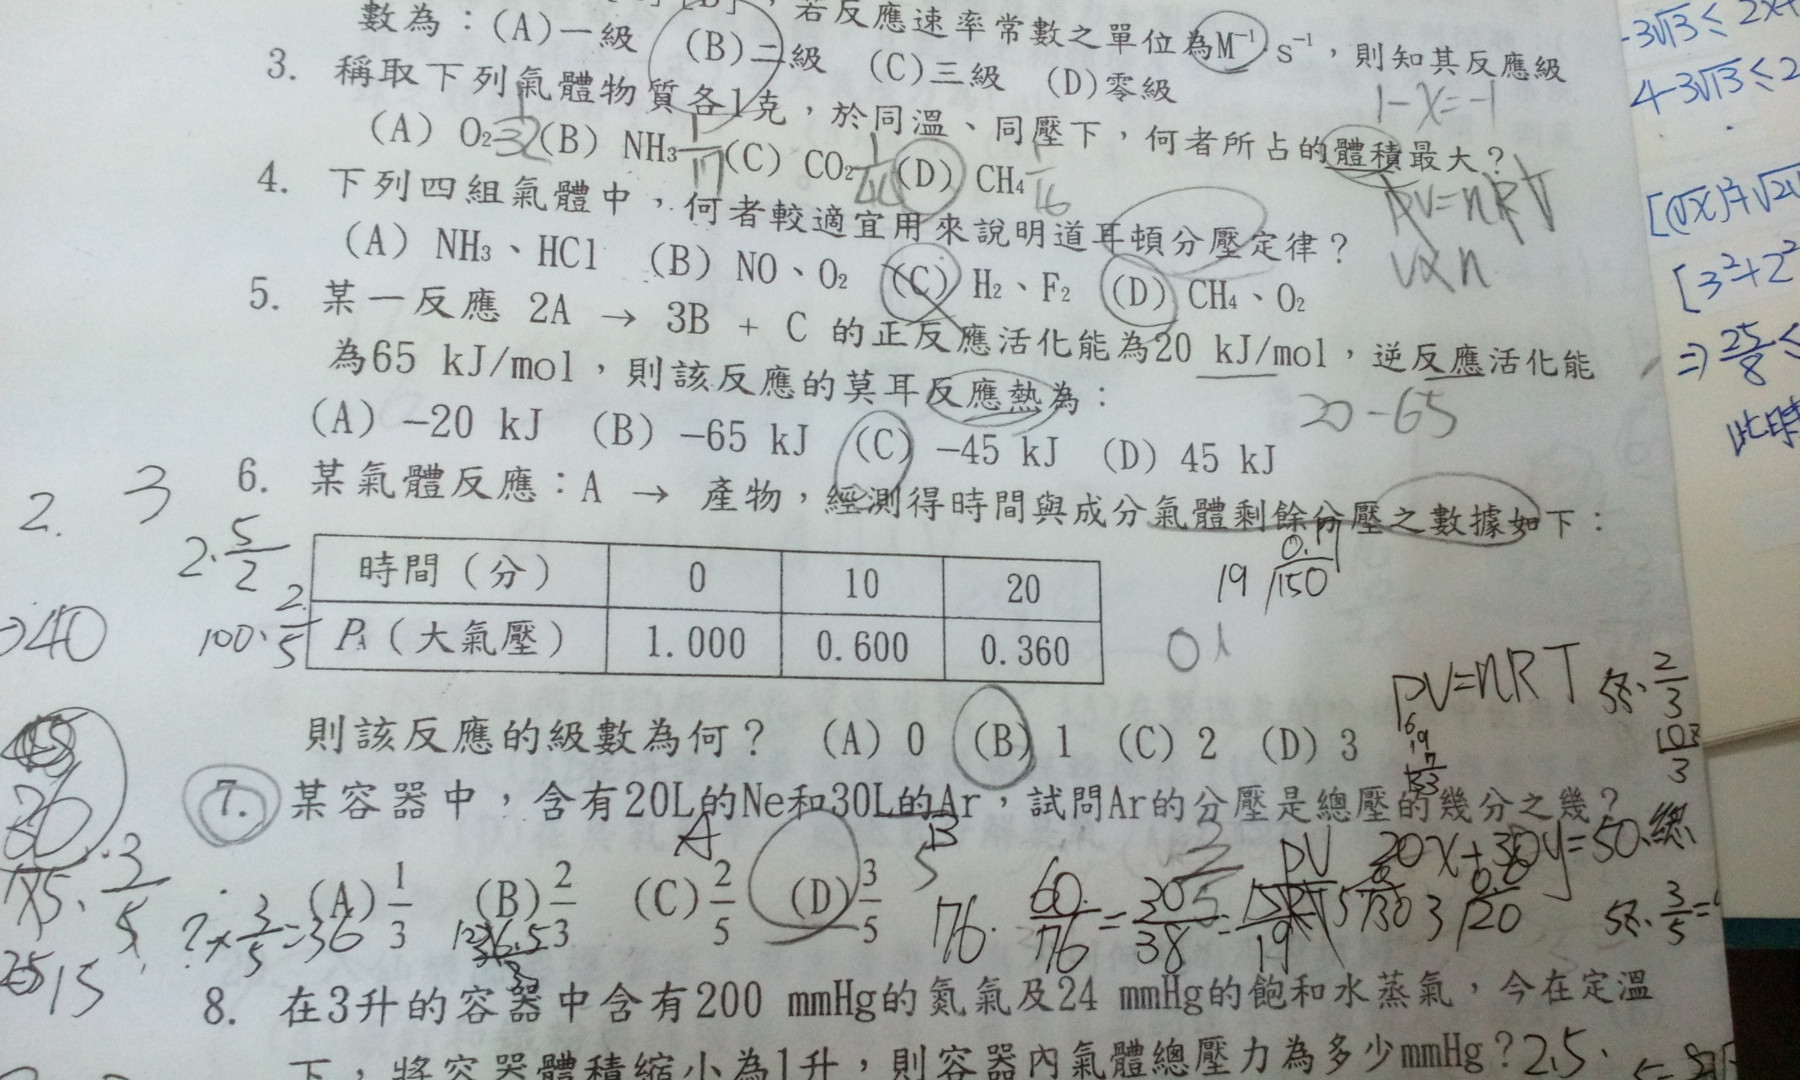 若反應速率常數之單位為M⁻¹·s⁻¹，則知其反應級
數為：(A)一級 (B)二級 (C)三級 (D)零級
1-x=-1
3. 稱取下列氣體物質各1克，於同溫、同壓下，何者所占的體積最大？
(A) O₂ 1/32 (B) NH₃ 1/17 (C) CO₂ (D) CH₄ 1/16
PV=nRT
V∝n
4. 下列四組氣體中，何者較適宜用來說明道耳頓分壓定律？
(A) NH₃、HCl (B) NO、O₂ (C) H₂、F₂ (D) CH₄、O₂
5. 某一反應 2A → 3B + C 的正反應活化能為20 kJ/mol，逆反應活化能
為65 kJ/mol，則該反應的莫耳反應熱為：
20-65
(A) -20 kJ (B) -65 kJ (C) -45 kJ (D) 45 kJ
6. 某氣體反應：A → 產物，經測得時間與成分氣體剩餘分壓之數據如下：
時間（分） 0 10 20
P_A（大氣壓） 1.000 0.600 0.360
PV=nRT
則該反應的級數為何？ (A) 0 (B) 1 (C) 2 (D) 3
7. 某容器中，含有20L的Ne和30L的Ar，試問Ar的分壓是總壓的幾分之幾？
A B
20x+30y=50·總
(A) 1/3 (B) 2/3 (C) 2/5 (D) 3/5
?×3/5=36
76·60/76=30/38=
8. 在3升的容器中含有200 mmHg的氮氣及24 mmHg的飽和水蒸氣，今在定溫
下，將容器體積縮小為1升，則容器內氣體總壓力為多少mmHg？
2.
3
2·5/2
100·2/5
→40
-3√13≤2x+
4-3√13≤2
[3²+2²
⇒25/8≤
此時